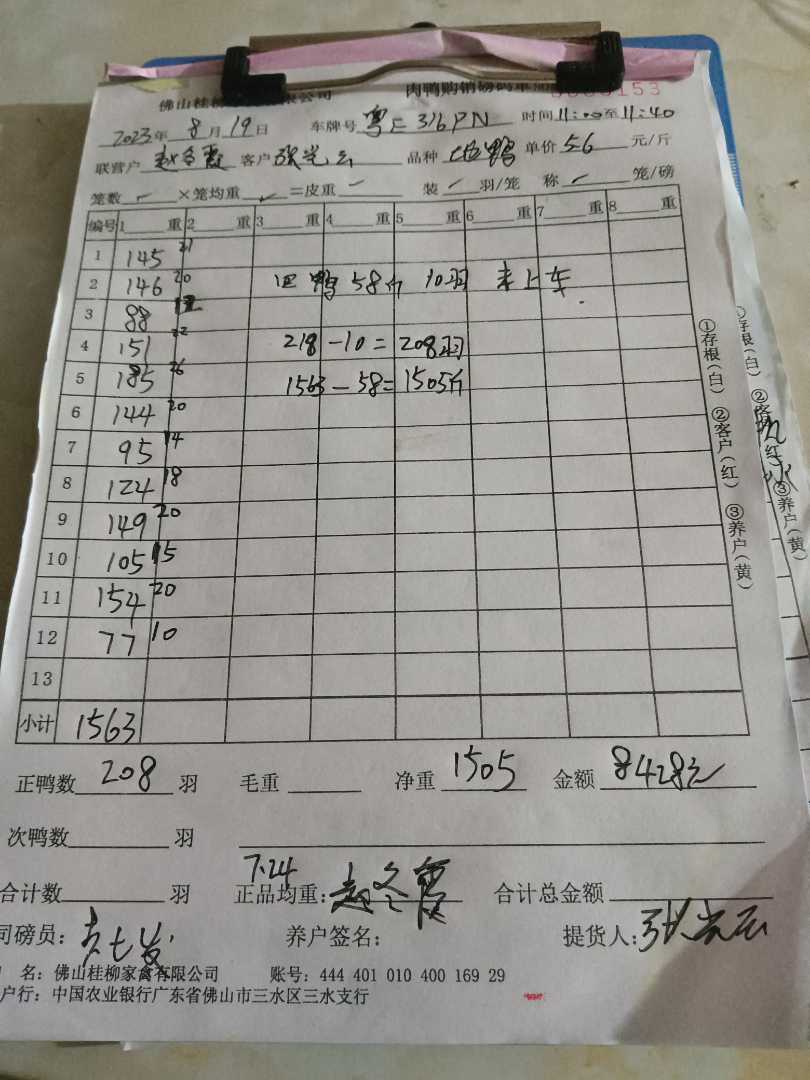 佛山桂柳 限公司 肉鸭购销磅码单 153
2023年8月19日 车牌号 粤E 316PN 时间11:00至11:40
联营户 赵冬霞 客户 张光云 品种 单价 5.6 元/斤
笼数 ×笼均重 =皮重 装 羽/笼 称 笼/磅
编号 1 重 2 重 3 重 4 重 5 重 6 重 7 重 8 重
1 145 21
2 146 20 回鸭58斤 10羽 未上车.
3 88 12
4 151 22 218-10=208羽
5 185 26 1563-58=1505斤
6 144 20
7 95 14
8 124 18
9 149 20
10 105 15
11 154 20
12 77 10
13
小计 1563
正鸭数 208 羽 毛重 净重 1505 金额 8428元
次鸭数 羽
合计数 羽 正品均重: 7.24 赵冬霞 合计总金额
司磅员: 养户签名: 提货人: 张光云
名: 佛山桂柳家禽有限公司 账号: 444 401 010 400 169 29
户行: 中国农业银行广东省佛山市三水区三水支行
①存根(白) ②客户(红) ③养户(黄)
存根(白) ②客 红 ③养户(黄)